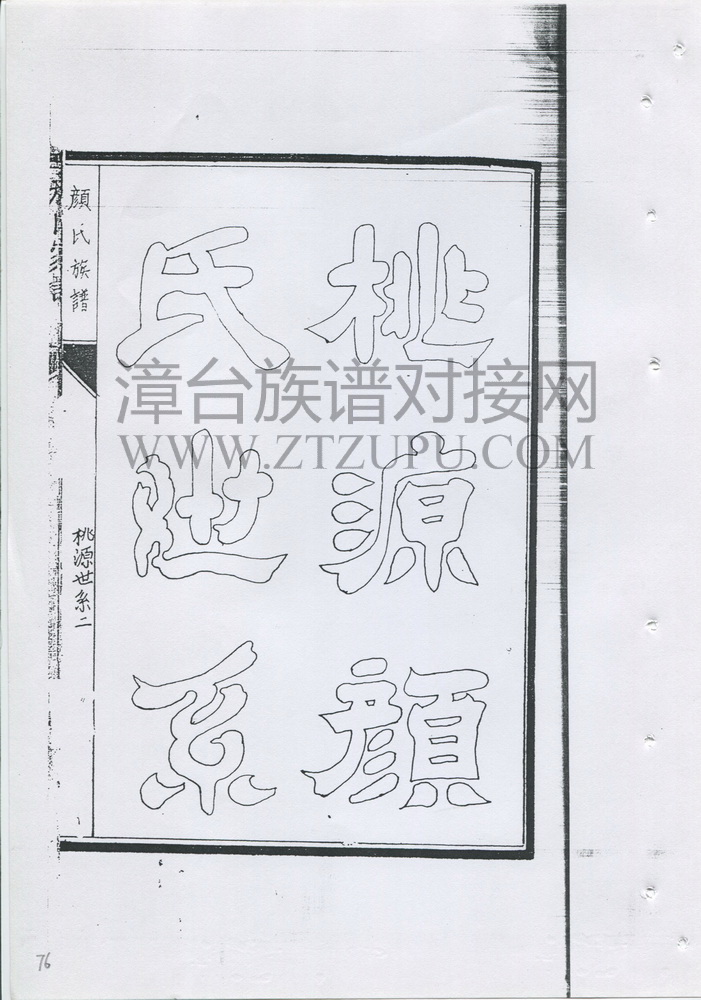 桃源顏
氏世系
顏氏族譜
桃源世系二
漳台族谱对接网
WWW.ZTZUPU.COM
76